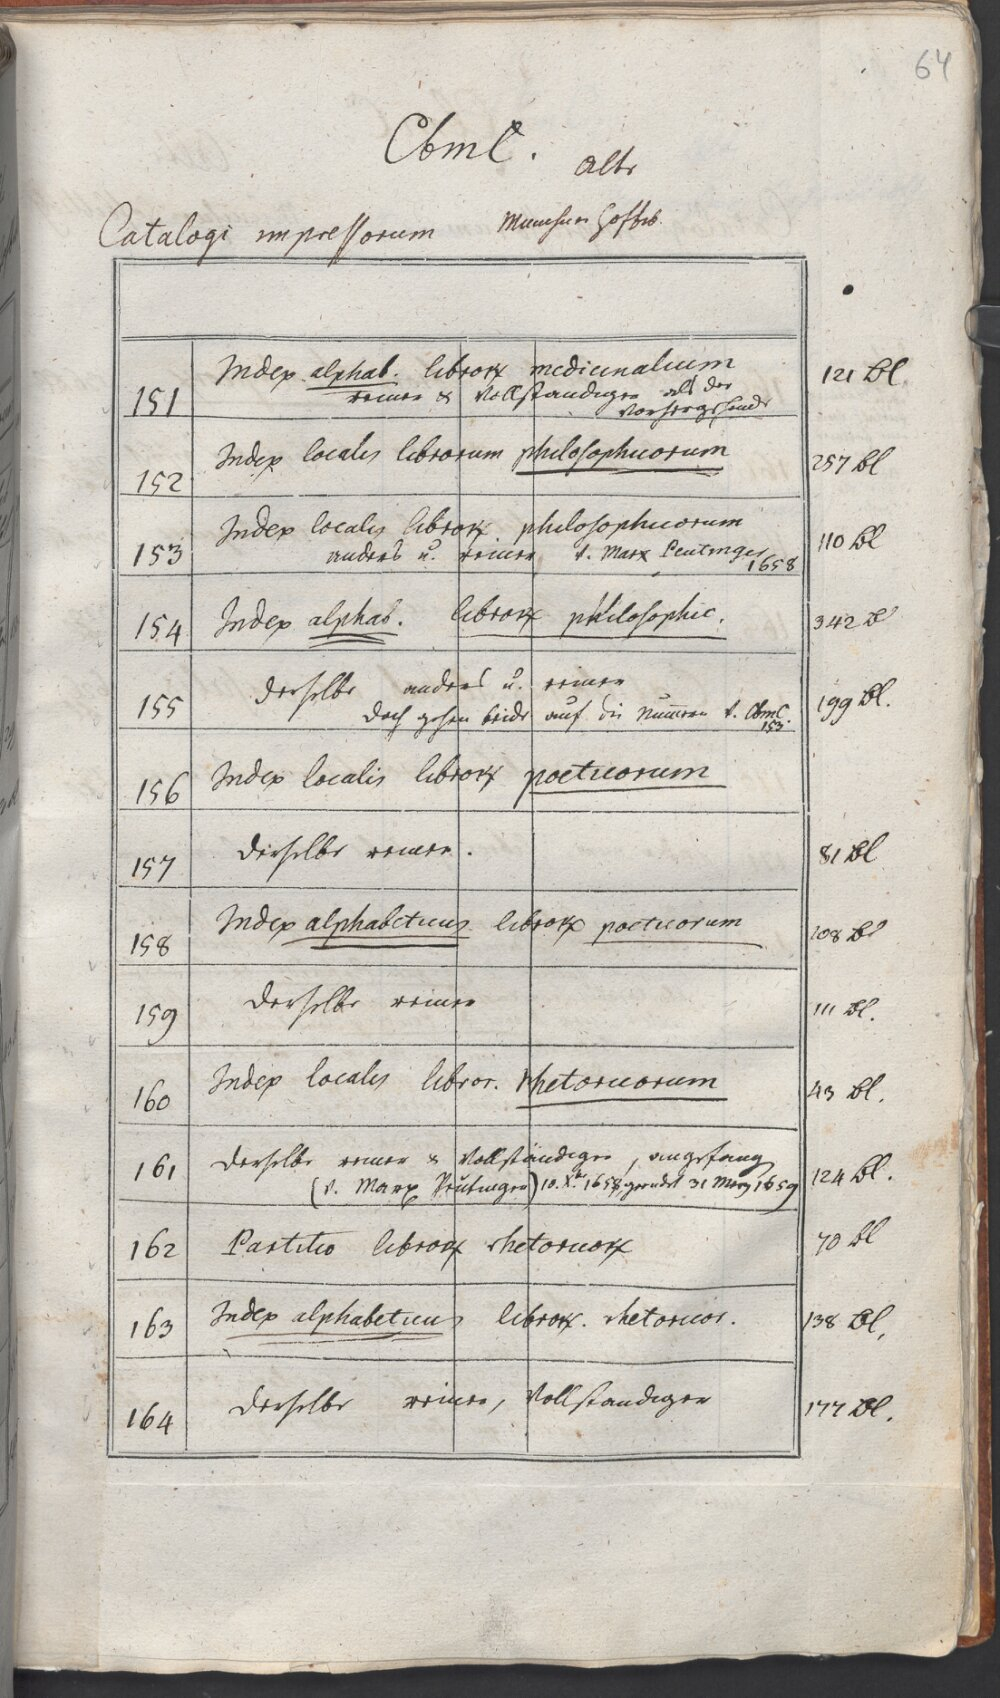 64
Cbml.
alte
Catalogi impressorum Münchner Hofbb.
151 Index alphab. libror. medicinalium 121 Bl.
reiner & vollständiger als der
vorhergehende
152 Index localis librorum philosophicorum 257 Bl
153 Index localis libror. philosophicorum 110 Bl
anders u. reiner v. Marx Peutinger
1658
154 Index alphab. libror. philosophic. 342 Bl
155 derselbe anders u. reiner 199 Bl.
doch gehen beide auf die Numern v. Cbml.
153
156 Index localis libror. poeticorum
157 derselbe reiner. 81 Bl
158 Index alphabeticus libror. poeticorum 108 Bl
159 derselbe reiner 111 Bl.
160 Index localis libror. rhetoricorum 43 Bl.
161 derselbe reiner & vollständiger, angefang 124 Bl.
(v. Marx Peutinger) 10. Xbr 1658, geendet 31 März 1659
162 Partitio libror. rhetoricor. 70 Bl
163 Index alphabeticus libror. rhetoricor. 138 Bl.
164 derselbe reiner, vollständiger 177 Bl.